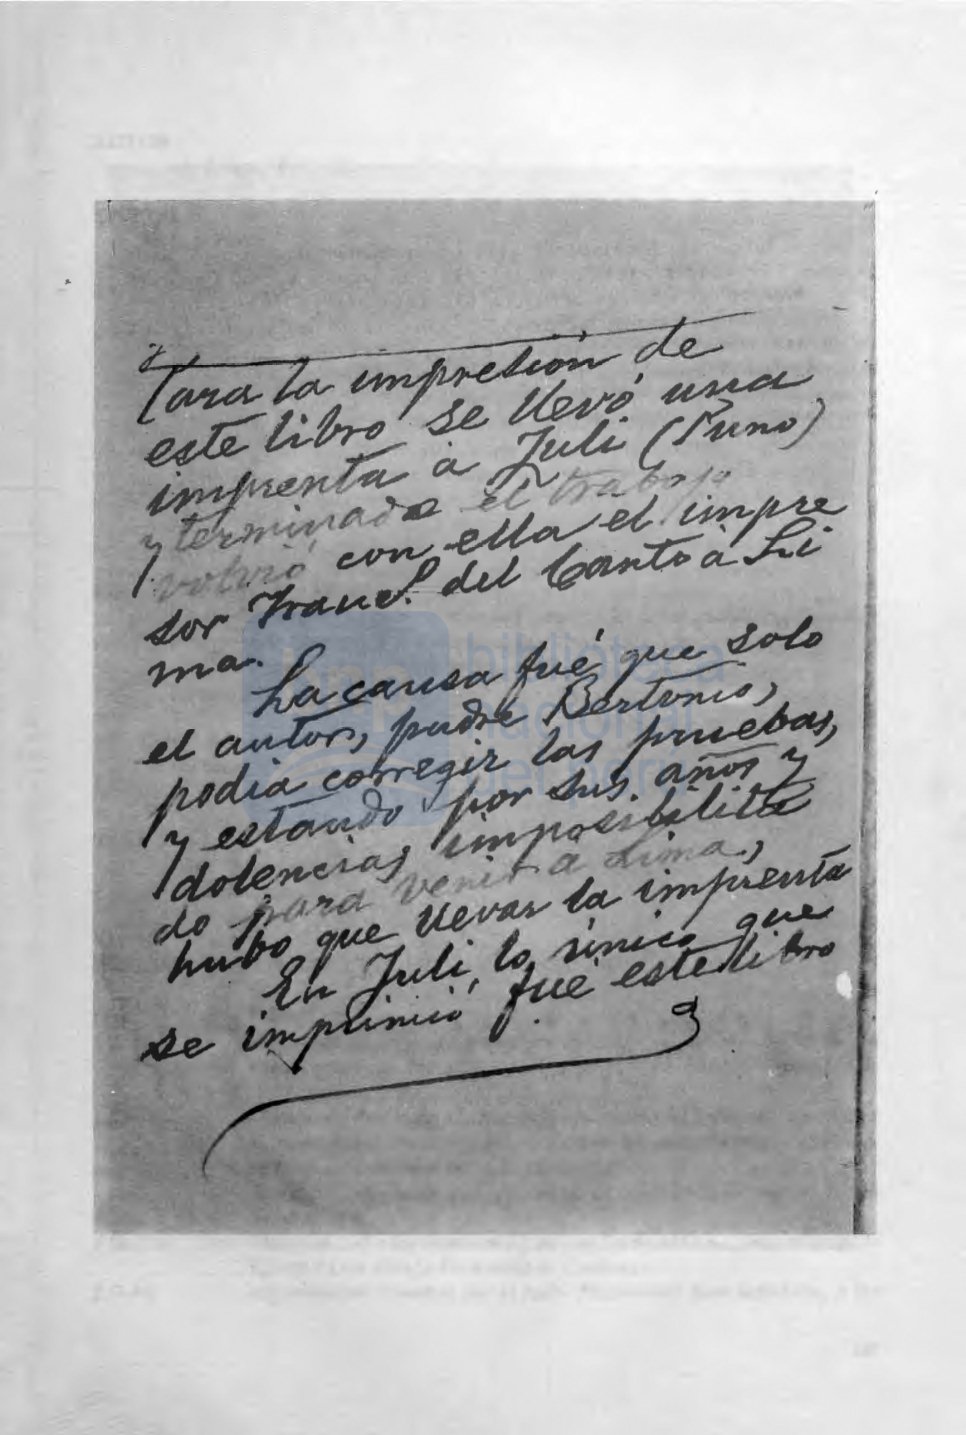 Para la impresión de
este libro se llevó una
imprenta a Juli (Puno)
y terminado el trabajo
volvió con ella el impre
sor Franc.º del Canto à Li
ma.
La causa fué que solo
el autor, padre Bertonio,
podia corregir las pruebas,
y estando por sus años y
dolencias imposibilita
do para venir a Lima,
hubo que llevar la imprenta
En Juli, lo único que
se imprimió fué este libro
biblioteca
nacional
del perú
bnp